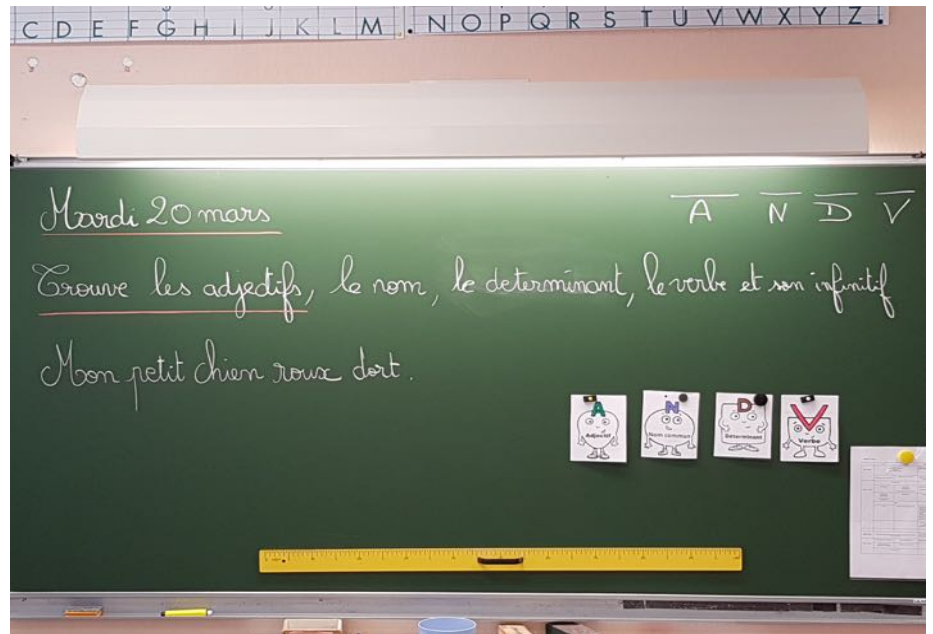 C D E F G H I J K L M . N O P Q R S T U V W X Y Z .
Mardi 20 mars
A N D V
Trouve les adjectifs, le nom, le determinant, le verbe et son infinitif
Mon petit chien roux dort.
A N D V
Adjectif Nom commun Déterminant Verbe